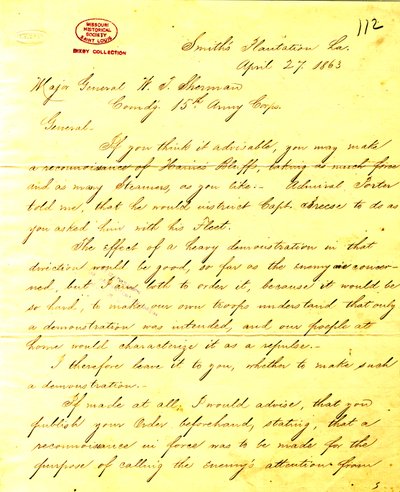 112
MISSOURI
HISTORICAL
SOCIETY
SAINT LOUIS
BIXBY COLLECTION
Smith's Plantation La.
April 27. 1863
Major General W. T. Sherman
Comdg. 15th Army Corps.
General.
If you think it advisable, you may make
a reconnoisance of Haines Bluff, taking as much force
and as many Steamers, as you like.- Admiral Porter
told me, that he would instruct Capt. Breese to do as
you asked him with his Fleet.
The effect of a heavy demonstration in that
direction would be good, so far as the enemy are concer-
ned, but I am loth to order it, because it would be
so hard, to make our own troops understand that only
a demonstration was intended, and our people at
home would characterize it as a repulse.-
I therefore leave it to you, whether to make such
a demonstration.-
If made at all, I would advise, that you
publish your Order beforehand, stating, that a
reconnoisance in force was to be made for the
purpose of calling the enemy's attention from